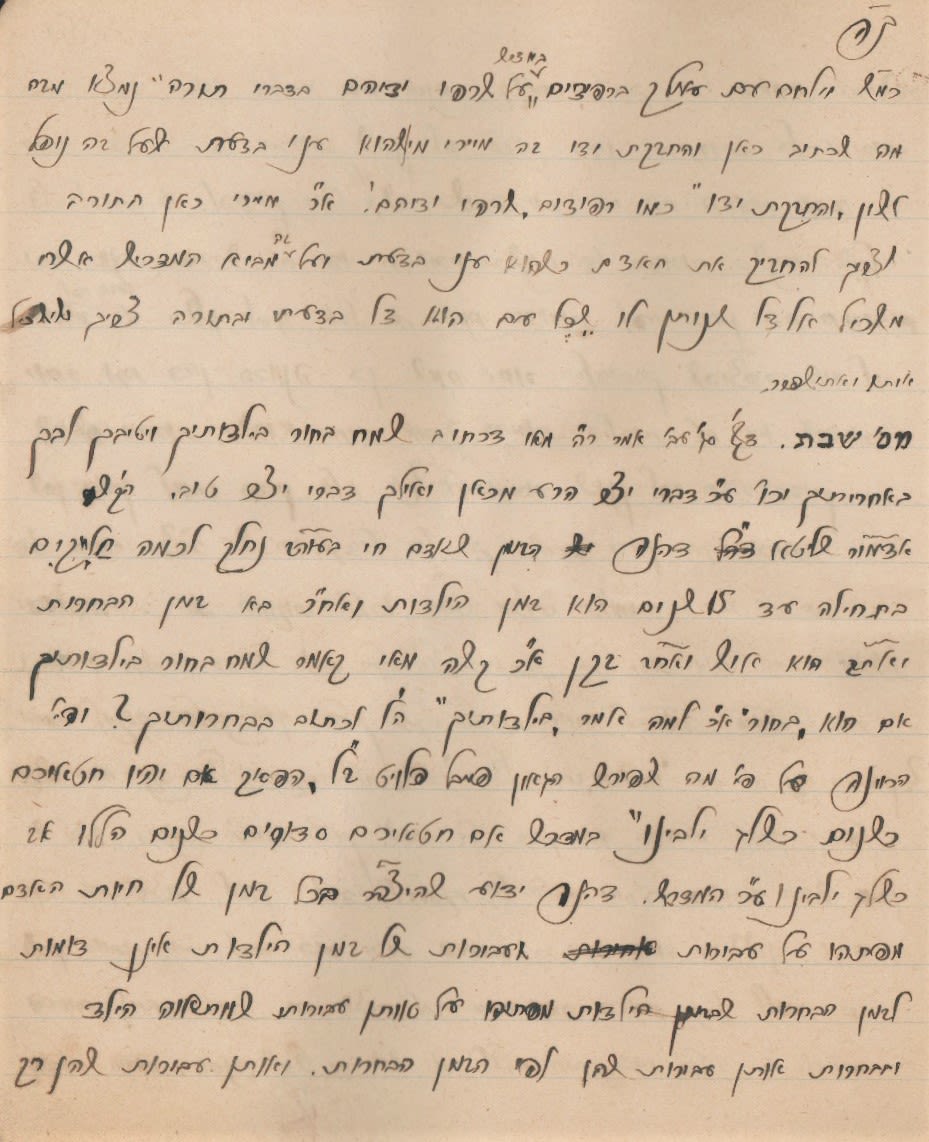 ב״ה
כמ״ש וילחם עם עמלק ברפידים „על שרפו ידיהם בדברי תורה״ נמצא מזה
במדרש
מה שכתיב כאן והחזקת ידו זה מיירי מי שהוא עני בדעת שעל זה נופל
לשון „והחזקת ידו״ כמו רפידים „שרפו ידיהם״. א״כ ממרי כאן התורה
וצריך להחזיק את האדם כשהוא עני בדעת ועל זה מביא המדרש אשרי
משכיל אל דל שנותן לו שכל עם הוא דל בדעת ובתורה צריך
אותו ואתי שפיר.
מס׳ שבת. דף ס״ג ע״ב אמר ר״ה מאי דכתיב שמח בחור בילדותיך ויטיבך לבך
באחריותיך וכו׳ ע״כ דברי יצה״ר הרע מכאן ואילך דברי יצר טוב. הקשה
אדמו״ר שליטא דהנה הזמן שאדם חי בעוה״ז נחלק לכמה חלקים
בתחילה עד 15 שנים הוא זמן הילדות ואח״כ בא זמן הבחרות
ואח״כ הוא איש ואח״כ זקן א״כ קשה מאי קאמר שמח בחור בילדותיך
אם הוא „בחור״ א״כ למה אמר „בילדותיך״ הי״ל לכתוב בבחרותיך ? וה״י
הכוונה על פי׳ מה שפירש הגאון פלויט ז״ל „הפסוק אם יהיו חטאיכם
כשנים כשלג ילבינו״ במדרש אם חטאיכם סדורים כשנים הללו אז
כשלג ילבינו ע״כ המדרש. דהנה ידוע שהיצה״ר בכל זמן של חיות האדם
מפתהו על עבירות ועבירות של זמן הילדות אינן דומות
לזמן הבחרות שבזמן הילדות מפתהו על אותן עבירות הילד
ובבחרות אותן עבירות שהן לפי הזמן הבחרות. ואותן עבירות שהן רק